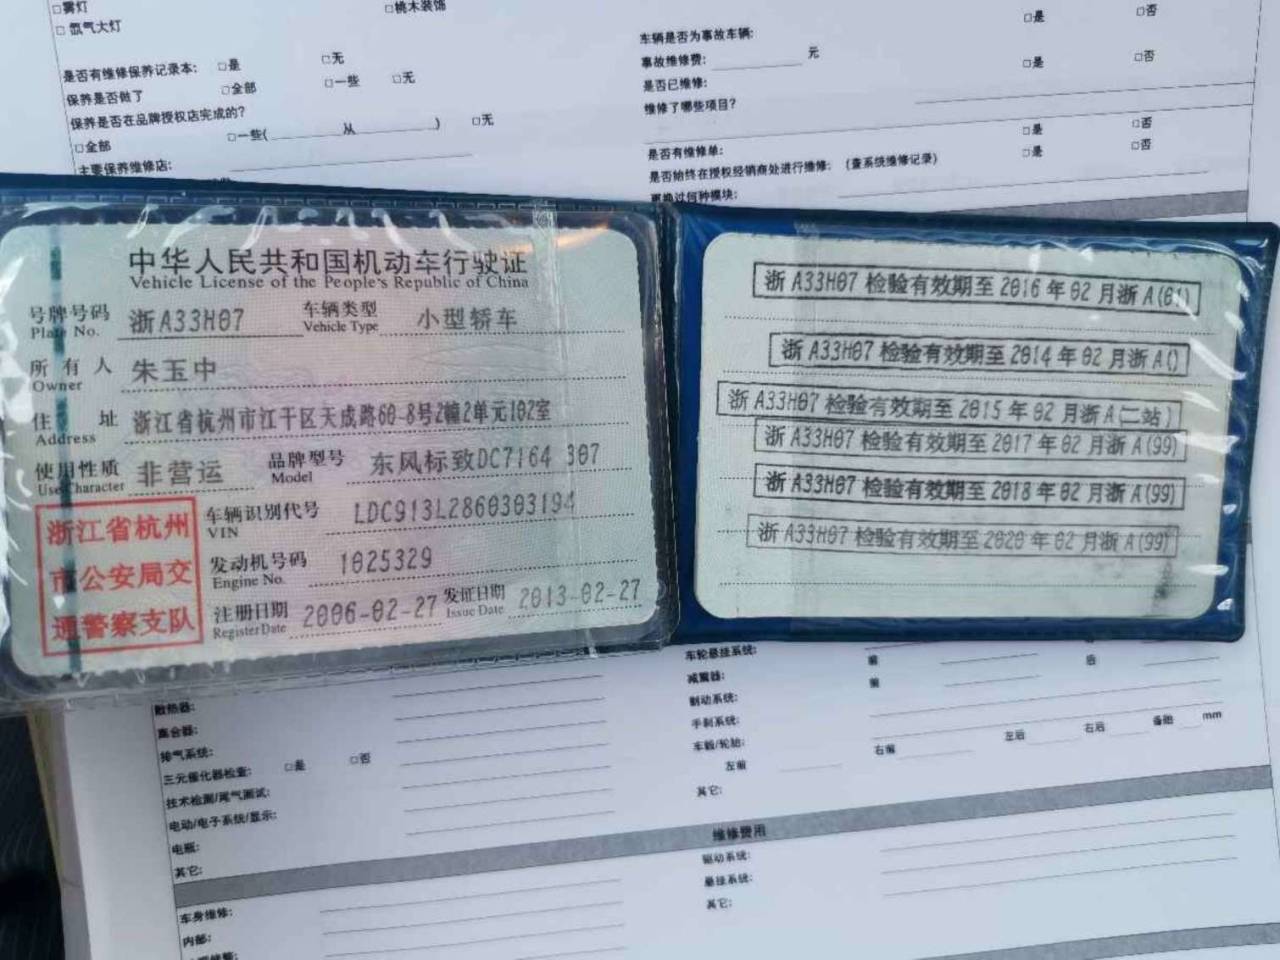 □雾灯
□桃木装饰
□氙气大灯
是否有维修保养记录本: □是 □无
保养是否做了 □全部 □一些 □无
保养是否在品牌授权店完成的?
□全部 □一些( 从 ) □无
主要保养维修店:
车辆是否为事故车辆: □是 □否
事故维修费: 元
是否已维修: □是 □否
维修了哪些项目?
是否有维修单: □是 □否
是否始终在授权经销商处进行维修: (查系统维修记录) □是 □否
更换过何种模块:
中华人民共和国机动车行驶证
Vehicle License of the People's Republic of China
号牌号码 浙A33H07 车辆类型 小型轿车
Plate No. Vehicle Type
所有人 朱玉中
Owner
住址 浙江省杭州市江干区天成路60-8号2幢2单元102室
Address
使用性质 非营运 品牌型号 东风标致DC7164 307
Use Character Model
车辆识别代号 LDC913L2860303194
VIN
发动机号码 1025329
Engine No.
注册日期 2006-02-27 发证日期 2013-02-27
Register Date Issue Date
浙江省杭州
市公安局交
通警察支队
浙A33H07 检验有效期至 2016年02月浙A(01)
浙A33H07 检验有效期至 2014年02月浙A()
浙A33H07 检验有效期至 2015年02月浙A(二站)
浙A33H07 检验有效期至 2017年02月浙A(99)
浙A33H07 检验有效期至 2018年02月浙A(99)
浙A33H07 检验有效期至 2020年02月浙A(99)
散热器:
集合器:
排气系统:
三元催化器检查: □是 □否
技术检测/尾气测试:
电动/电子系统/显示:
电瓶:
其它:
车轮悬挂系统: 前 后
减震器: 前
制动系统:
手刹系统:
车毂/轮胎: 右前 左后 右后 备胎 mm
左前
其它:
维修费用
车身维修:
内部:
驱动系统:
悬挂系统:
其它: